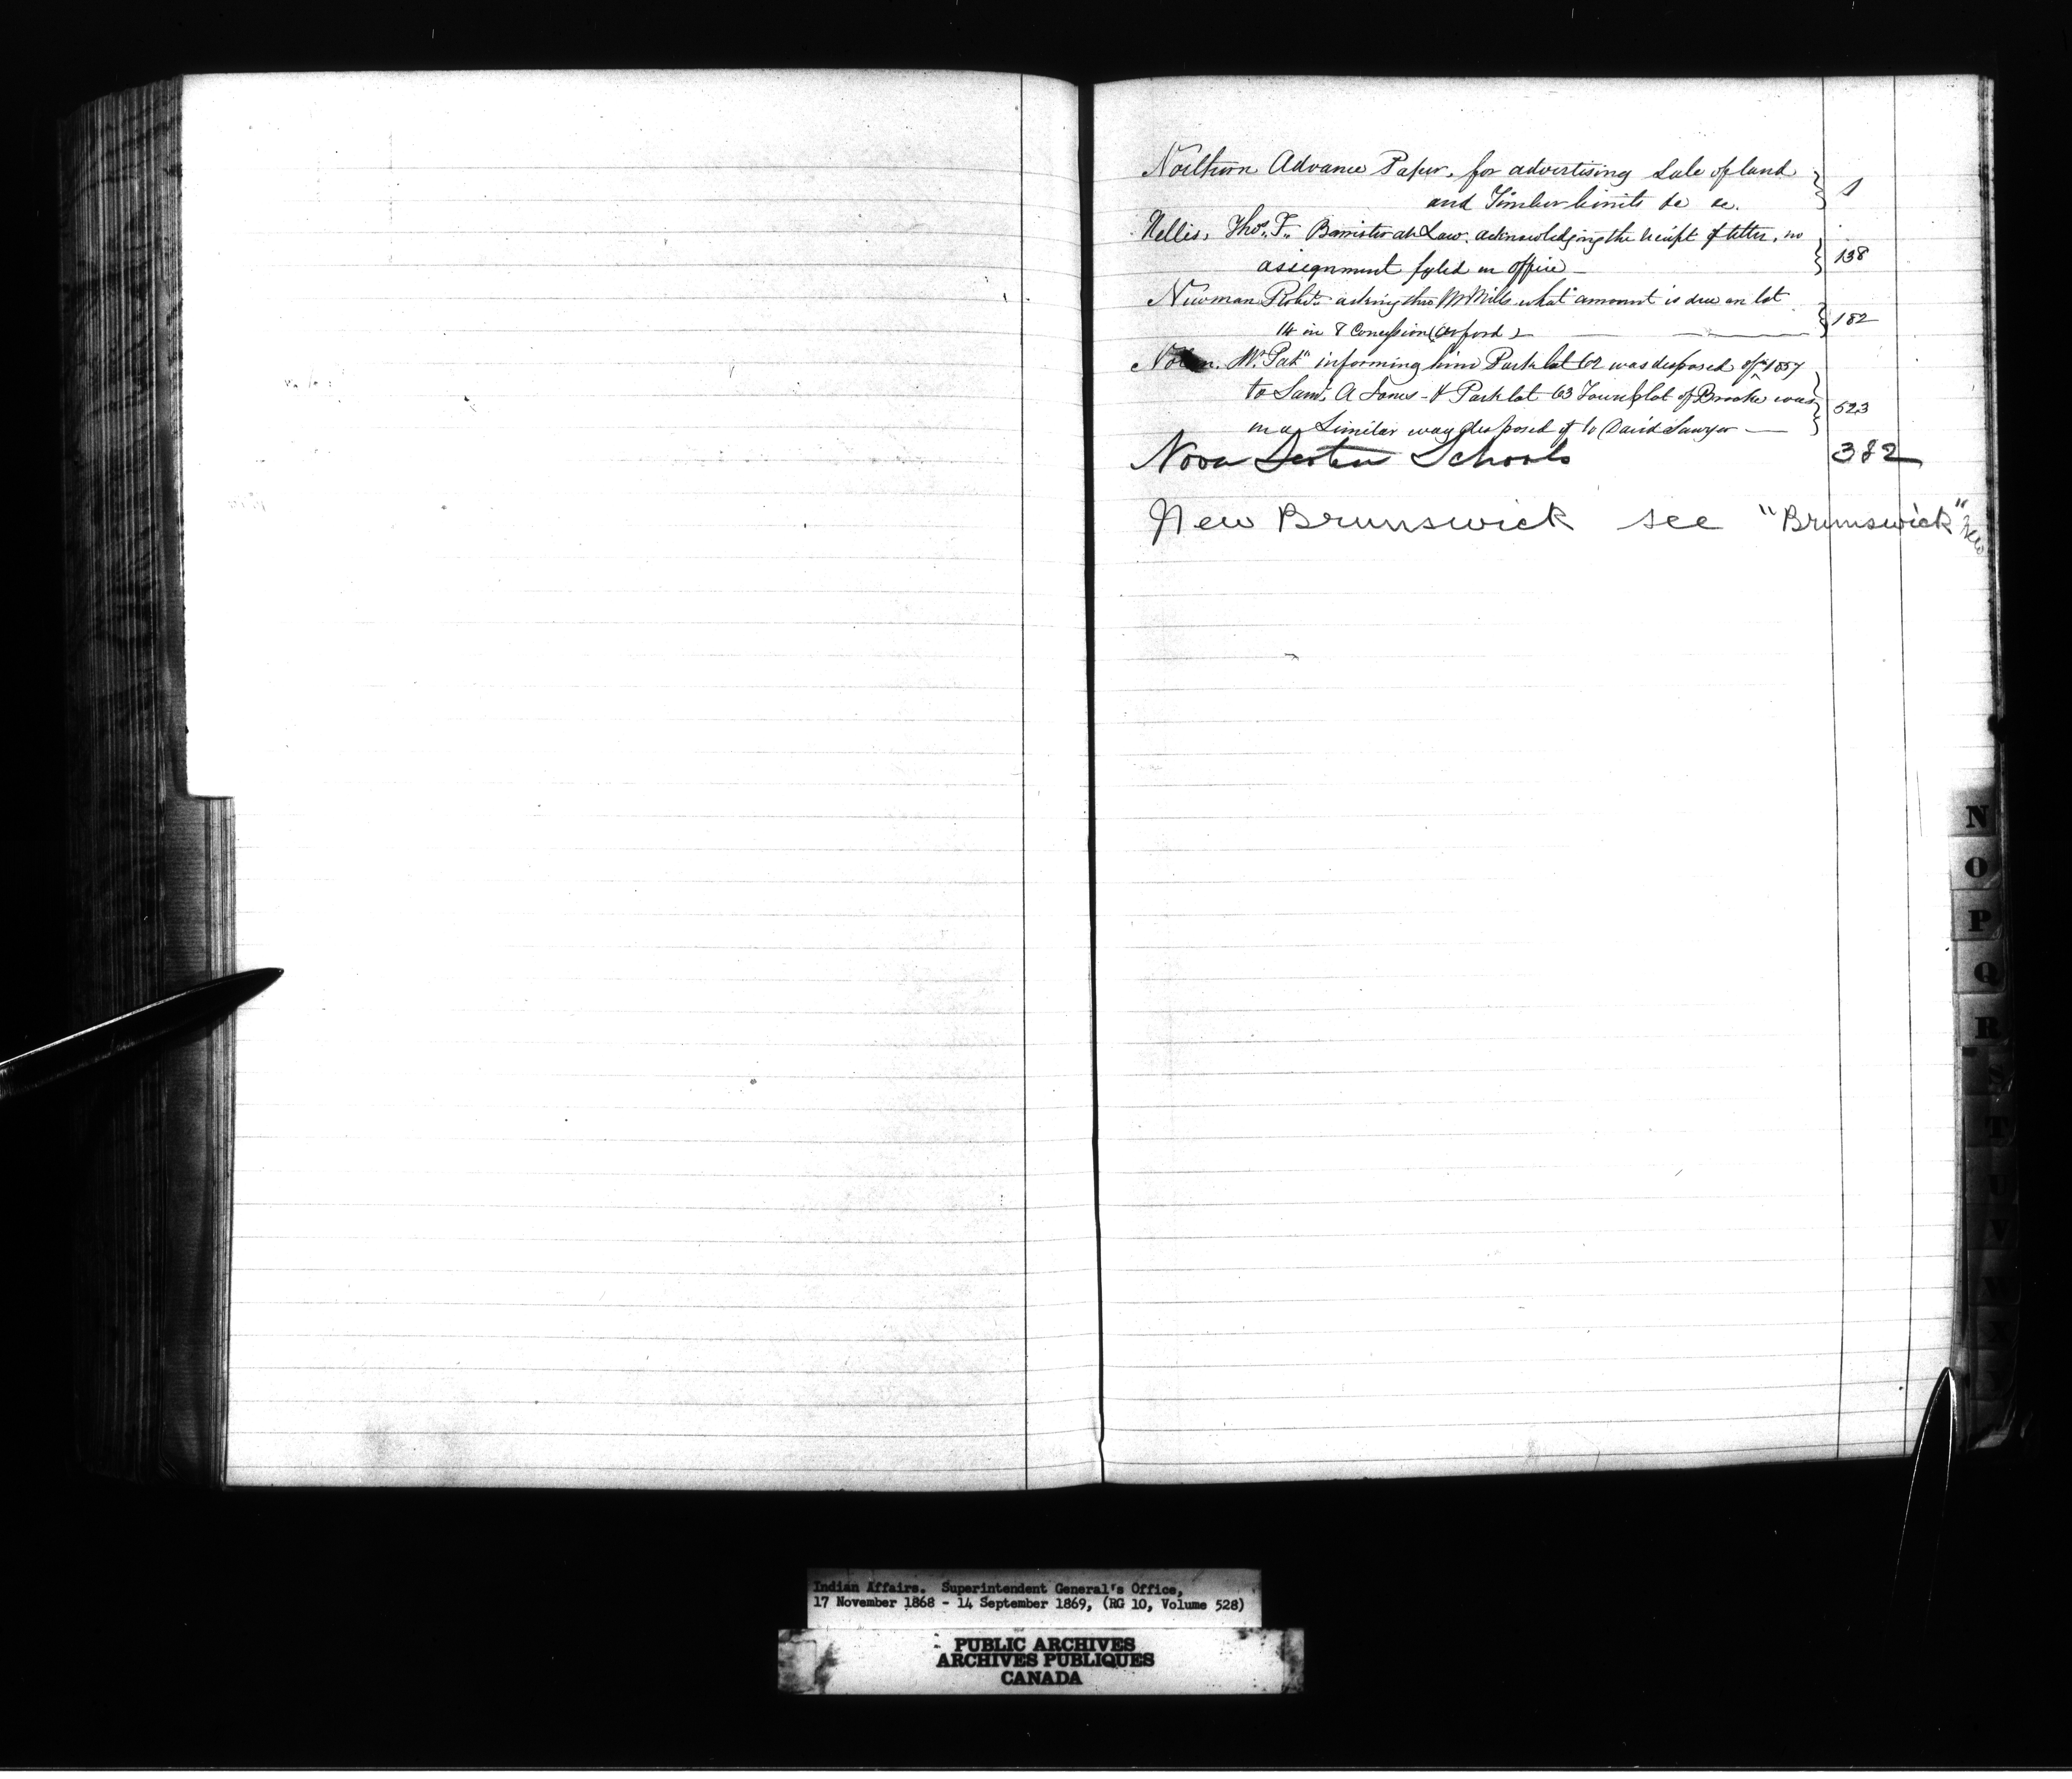 Northern Advance Paper, for advertising Sale of land
and Timber limits &c &c. 1
Nellis, Thos. F. Barrister at Law. acknowledging the receipt of letter, no
assignment fyled in office — 138
Newman Robt. asking thro Mr Mills what amount is due on lot
14 in 8 Concession (Orford) — 182
Mr. Patk. informing him Park lot 62 was disposed of in 1857
to Saml. A Jones - & Park lot 63 Townplot of Brooke was 523
in a Similar way disposed of to David Sawyer —
Nova Scotia Schools 382
New Brunswick see "Brunswick" New
N
O
P
Q
R
S
T
U
V
W
X
Y
Indian Affairs. Superintendent General's Office,
17 November 1868 - 14 September 1869, (RG 10, Volume 528)
PUBLIC ARCHIVES
ARCHIVES PUBLIQUES
CANADA